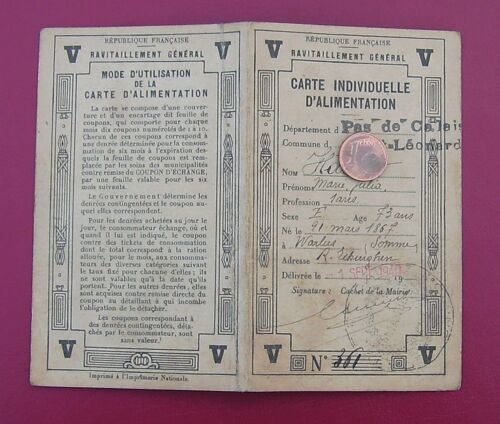 V
RÉPUBLIQUE FRANÇAISE
RAVITAILLEMENT GÉNÉRAL
V
MODE D'UTILISATION
DE LA
CARTE D'ALIMENTATION
La carte se compose d'une couver-
ture et d'un encartage dit feuille de
coupons, qui comporte pour chaque
mois dix coupons numérotés de 1 à 10.
Chacun de ces coupons correspond à
un dixième de la ration mensuelle.
Cette carte est valable pour la consom-
mation de six mois à l'expiration des-
quels la feuille de coupons est rem-
placée par les soins des municipalités
contre remise du COUPON D'ÉCHANGE,
par une feuille valable pour les six mois
suivants.
Le Gouvernement détermine les
denrées contingentées et le coupon au-
quel elles correspondent.
Pour les denrées achetées au jour le
jour, le consommateur échange, au lieu
où il lui est indiqué, le coupon contre
des tickets de consommation
dont le total correspond à la ration
allouée, pour le mois, aux consomma-
teurs des diverses catégories suivant
le taux fixé pour chacune d'elles; ils
ne sont valables qu'à la date qu'ils
portent. Pour les autres denrées, elles
sont acquises contre remise directe du
coupon au détaillant à qui incombe
l'obligation de le détacher.
Les coupons correspondant à
des denrées contingentées, détachés
par le consommateur, sont
sans valeur.
V
V
Imprimé à l'Imprimerie Nationale.
V
RÉPUBLIQUE FRANÇAISE
RAVITAILLEMENT GÉNÉRAL
V
CARTE INDIVIDUELLE
D'ALIMENTATION
Département d Pas de Calais
Commune d Léonard
Prénoms Marie Julia
Profession
Sexe F Age 73 ans
Né le 21 mars 1867
à Warlus Somme
Adresse R.
Délivrée le 1 SEP. 19
Signature : Cachet de la Mairie :
V
V
N°